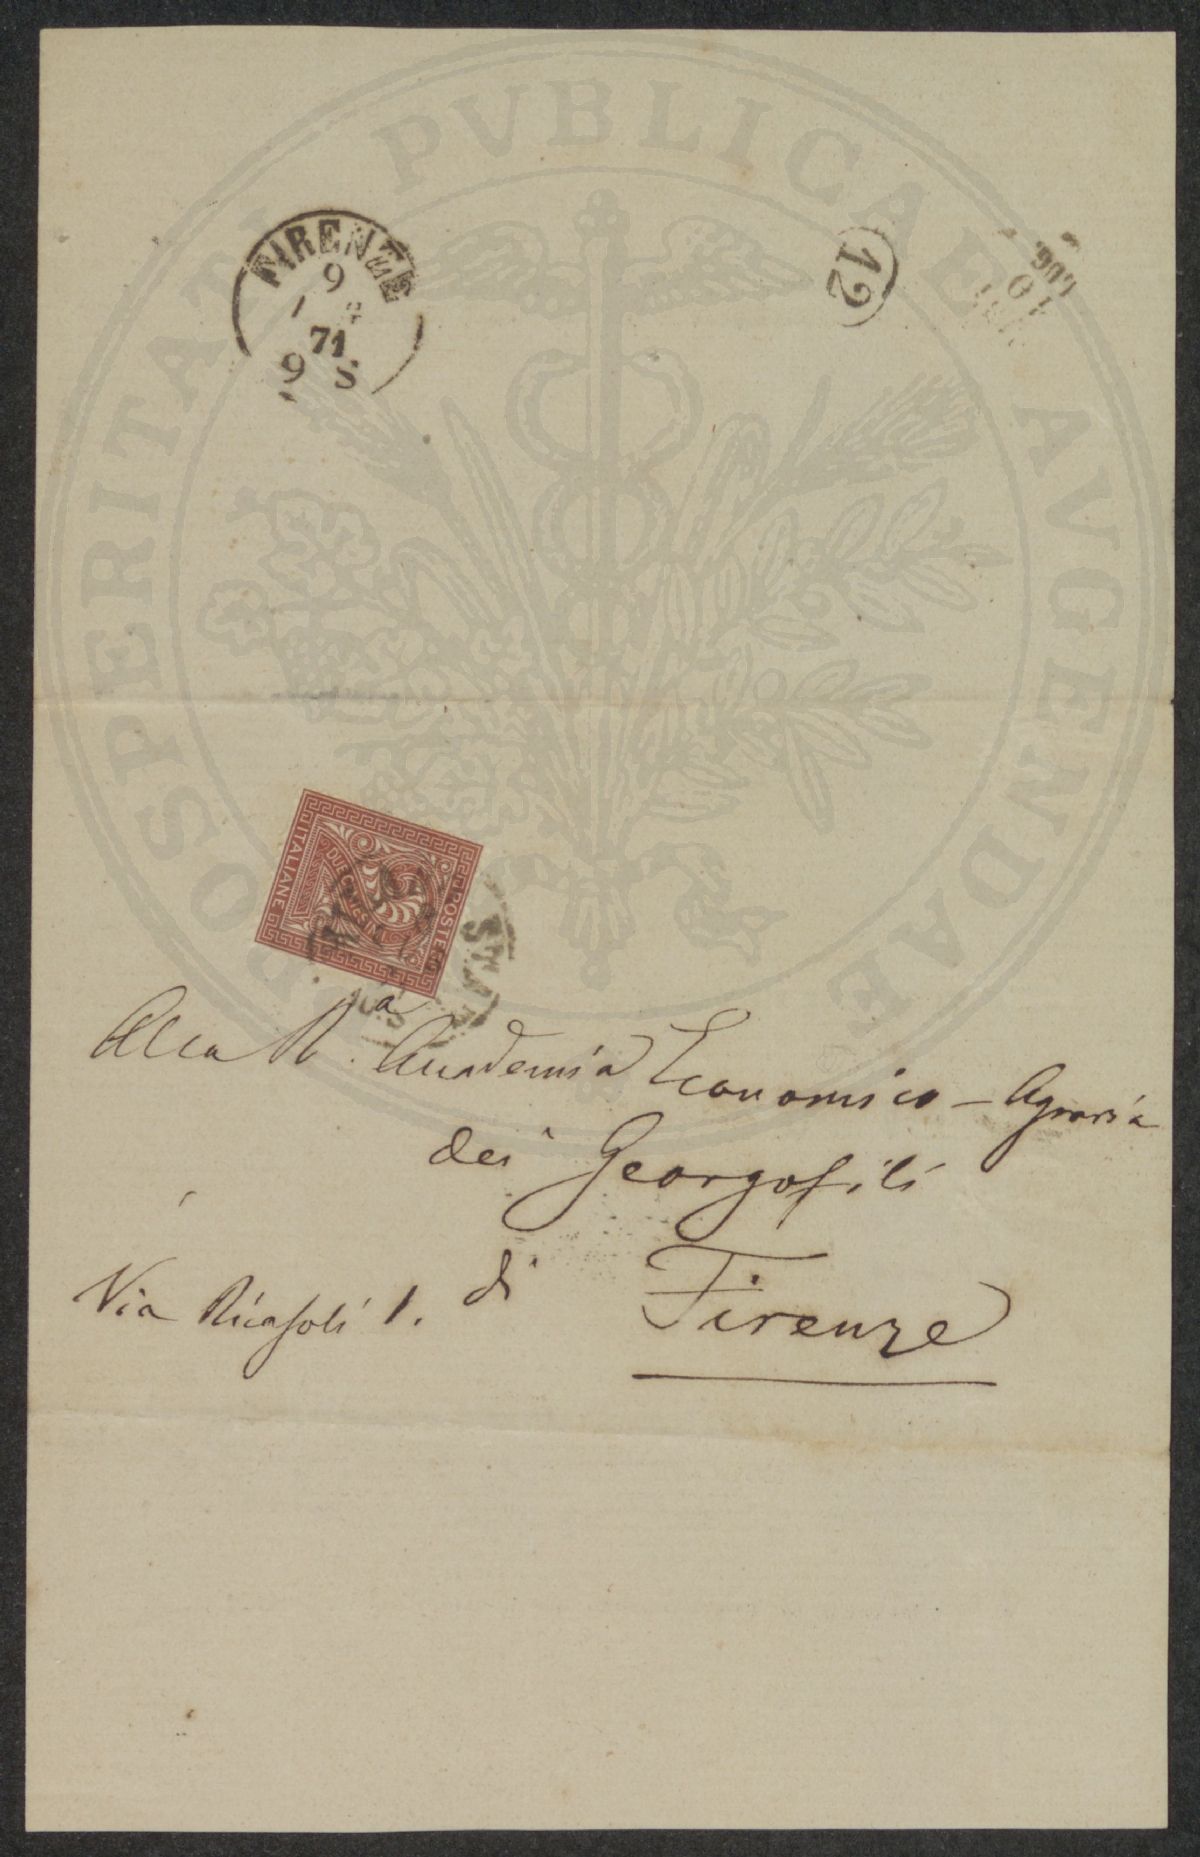 PROSPERITATI PVBLICAE AVGENDAE
FIRENZE
9
71
9 S
12
LUG
10
POSTE
ITALIANE
DUE CENTESIMI
Alla R.a Accademia Economico - Agraria
dei Georgofili
di Firenze
Via Ricasoli 1.